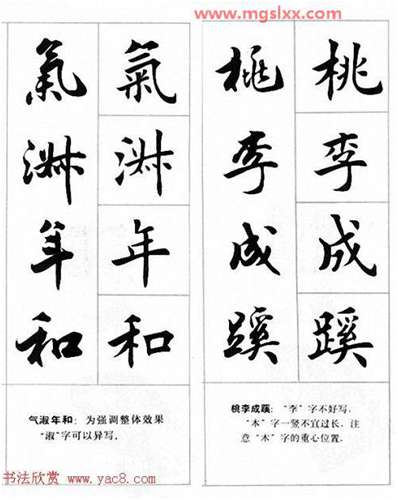 www.mgslxx.com
桃李成蹊
桃李成蹊
桃李成蹊：“李”字不好写，
“木”字一竖不宜过长，注
意“木”字的重心位置。
氣淑年和
氣淑年和
气淑年和：为强调整体效果
“淑”字可以异写。
书法欣赏 www.yac8.com